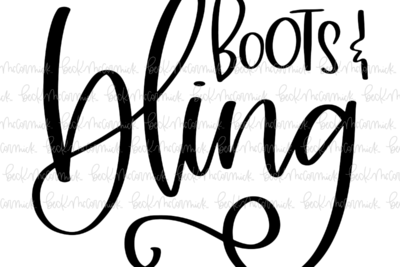 BOOTS &
bling